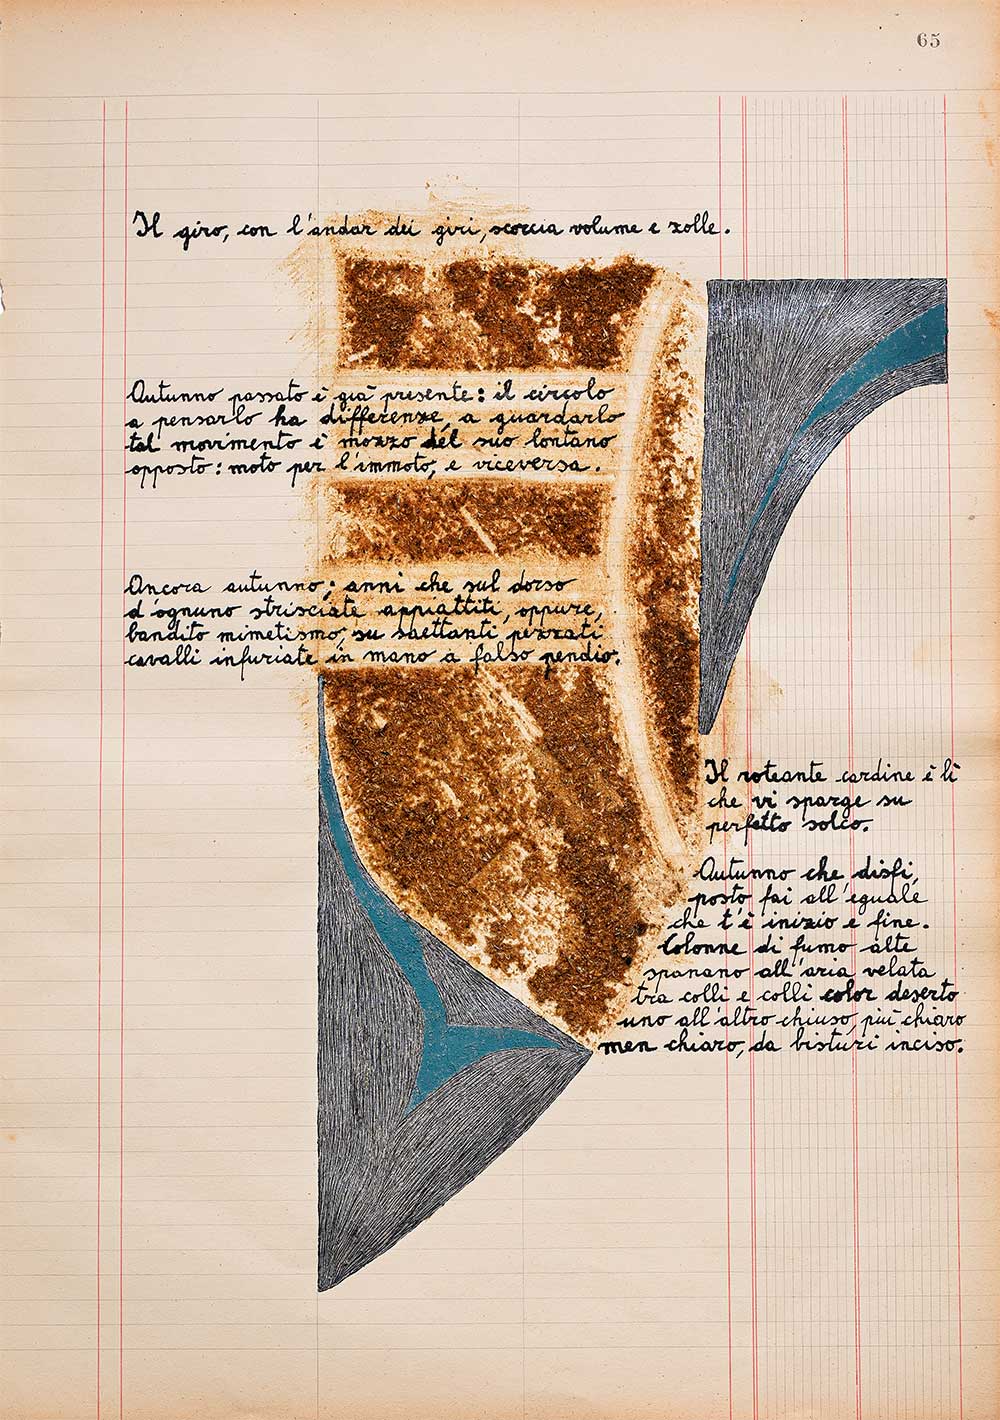 65
Il giro, con l'andar dei giri, scoccia volume e zolle.
Autunno passato è già presente: il circolo
a pensarlo ha differenze, a guardarlo
tal movimento è mozzo del suo lontano
opposto: moto per l'immoto, e viceversa.
Ancora autunno; anni che sul dorso
d'ognuno strisciate appiattiti, oppure,
bandito mimetismo, su saettanti pezzati
cavalli infuriate in mano a falso pendio.
Il roteante cardine è lì
che vi sparge su
perfetto solco.
Autunno che disfi,
posto fai all'eguale
che t'è inizio e fine.
Colonne di fumo alte
spanano all'aria velata
tra colli e colli color deserto
uno all'altro chiuso, più chiaro
men chiaro, da bisturi inciso.